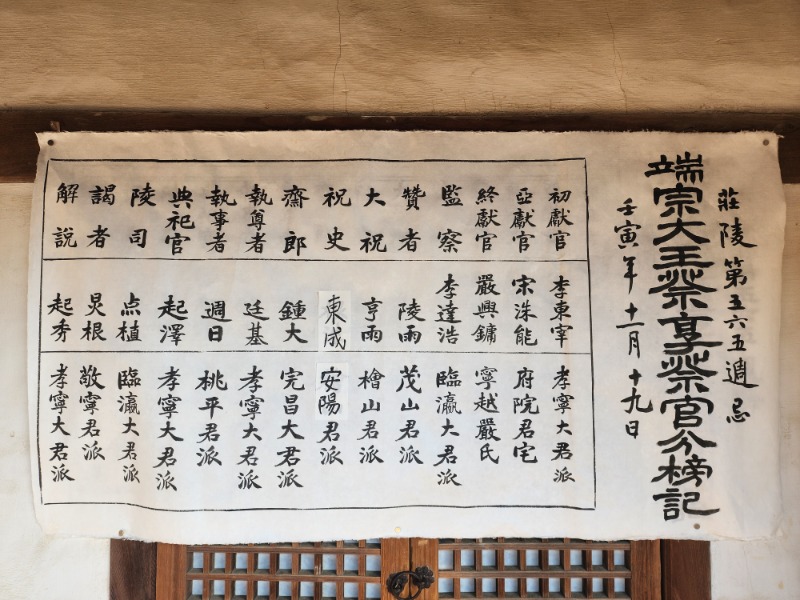 莊陵第五六五週忌
端宗大王祭享祭官分榜記
壬寅年十一月十九日
初獻官 李東宰 孝寧大君派
亞獻官 宋洙能 府院君宅
終獻官 嚴興鏞 寧越嚴氏
監察 李達浩 臨瀛大君派
贊者 陵雨 茂山君派
大祝 亨雨 檜山君派
祝史 東成 安陽君派
齋郎 鍾大 完昌大君派
執尊者 廷基 孝寧大君派
執事者 週日 桃平君派
典祀官 起澤 孝寧大君派
陵司 点植 臨瀛大君派
謁者 炅根 敬寧君派
解說 起秀 孝寧大君派